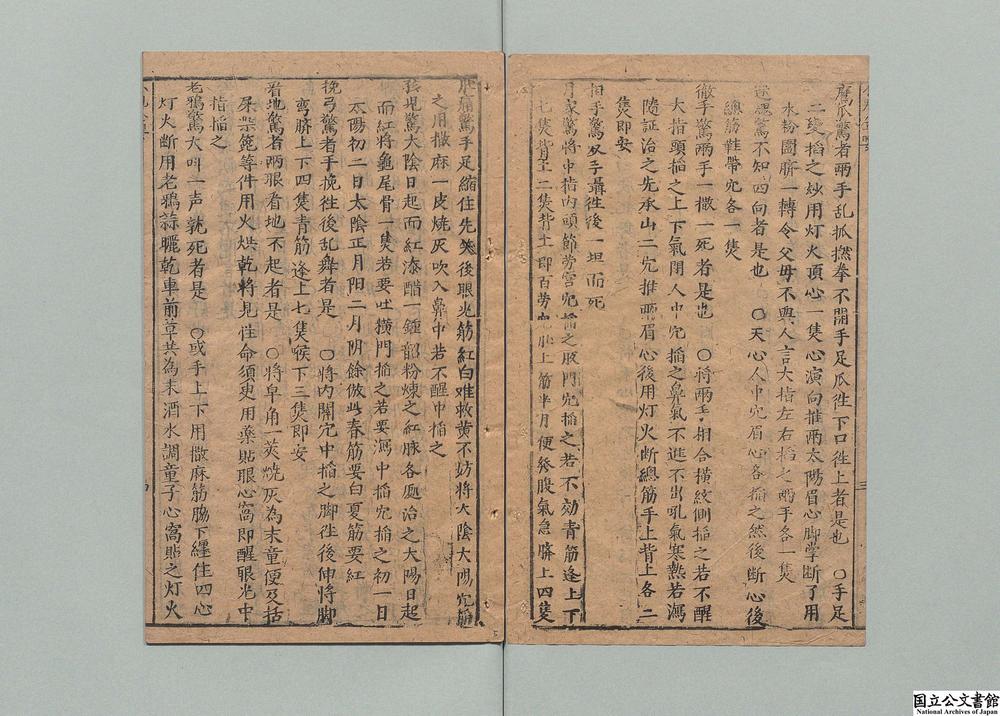 鷹爪驚者兩手乱抓撚拳不開手足爪徃下口徃上者是也 〇手足
二受搯之炒用灯火頂心一隻心演向推兩太陽眉心脚掌断了用
水粉圊臍一轉令父母不與人言大指左右搯之兩手各一隻
驚不知四向者是也 〇天心人中穴眉心各搯之然後断心後
總筋鞋帶穴各一隻
徹手驚兩手一撒一死者是也 〇將兩手相合橫紋側搯之若不醒
大指頭搯之上下氣閉人中穴搯之鼻氣不進不出吼氣寒熱若瀉
隨証治之先承山二穴推兩眉心後用灯火断總筋手上背上各二
隻即安
手驚双手攝徃後一坦而死
月家驚將中指内頭節劳宮穴搯之板門穴搯之若不効青筋逢上下
七隻背上二隻背上即百劳穴肚上筋半月便發股氣急臍上四隻
肚痛驚手足縮住先笑後眼光筋紅白难救黄不妨將太陰太陽穴搯
之用撒麻一皮燒灰吹入鼻中若不醒中搯之
孩児驚太陰日起而紅添醋一鍾韶粉煉之紅脉各處治之太陽日起
而紅將龜尾骨一隻若要吐橫門搯之若要瀉中搯穴搯之初一日
太陽初二日太陰正月阳二月阴餘倣此春筋要白夏筋要紅
挽弓驚者手挽徃後乱舞者是 〇將内關穴中搯之脚徃後伸將脚
弯臍上下四隻青筋逢上七隻喉下三隻即安
看地驚者兩眼看地不起者是 〇將皁角一莢燒灰為末童便及括
屎柴箆等件用火烘乾將児性命須臾用藥貼眼心窩即醒眼光中
指搯之
老鴉驚大叫一声就死者是 〇或手上下用撒麻筋脇下纏住四心
灯火断用老鴉蒜曬乾車前草共為末酒水調童子心窩貼之灯火
国立公文書館
National Archives of Japan